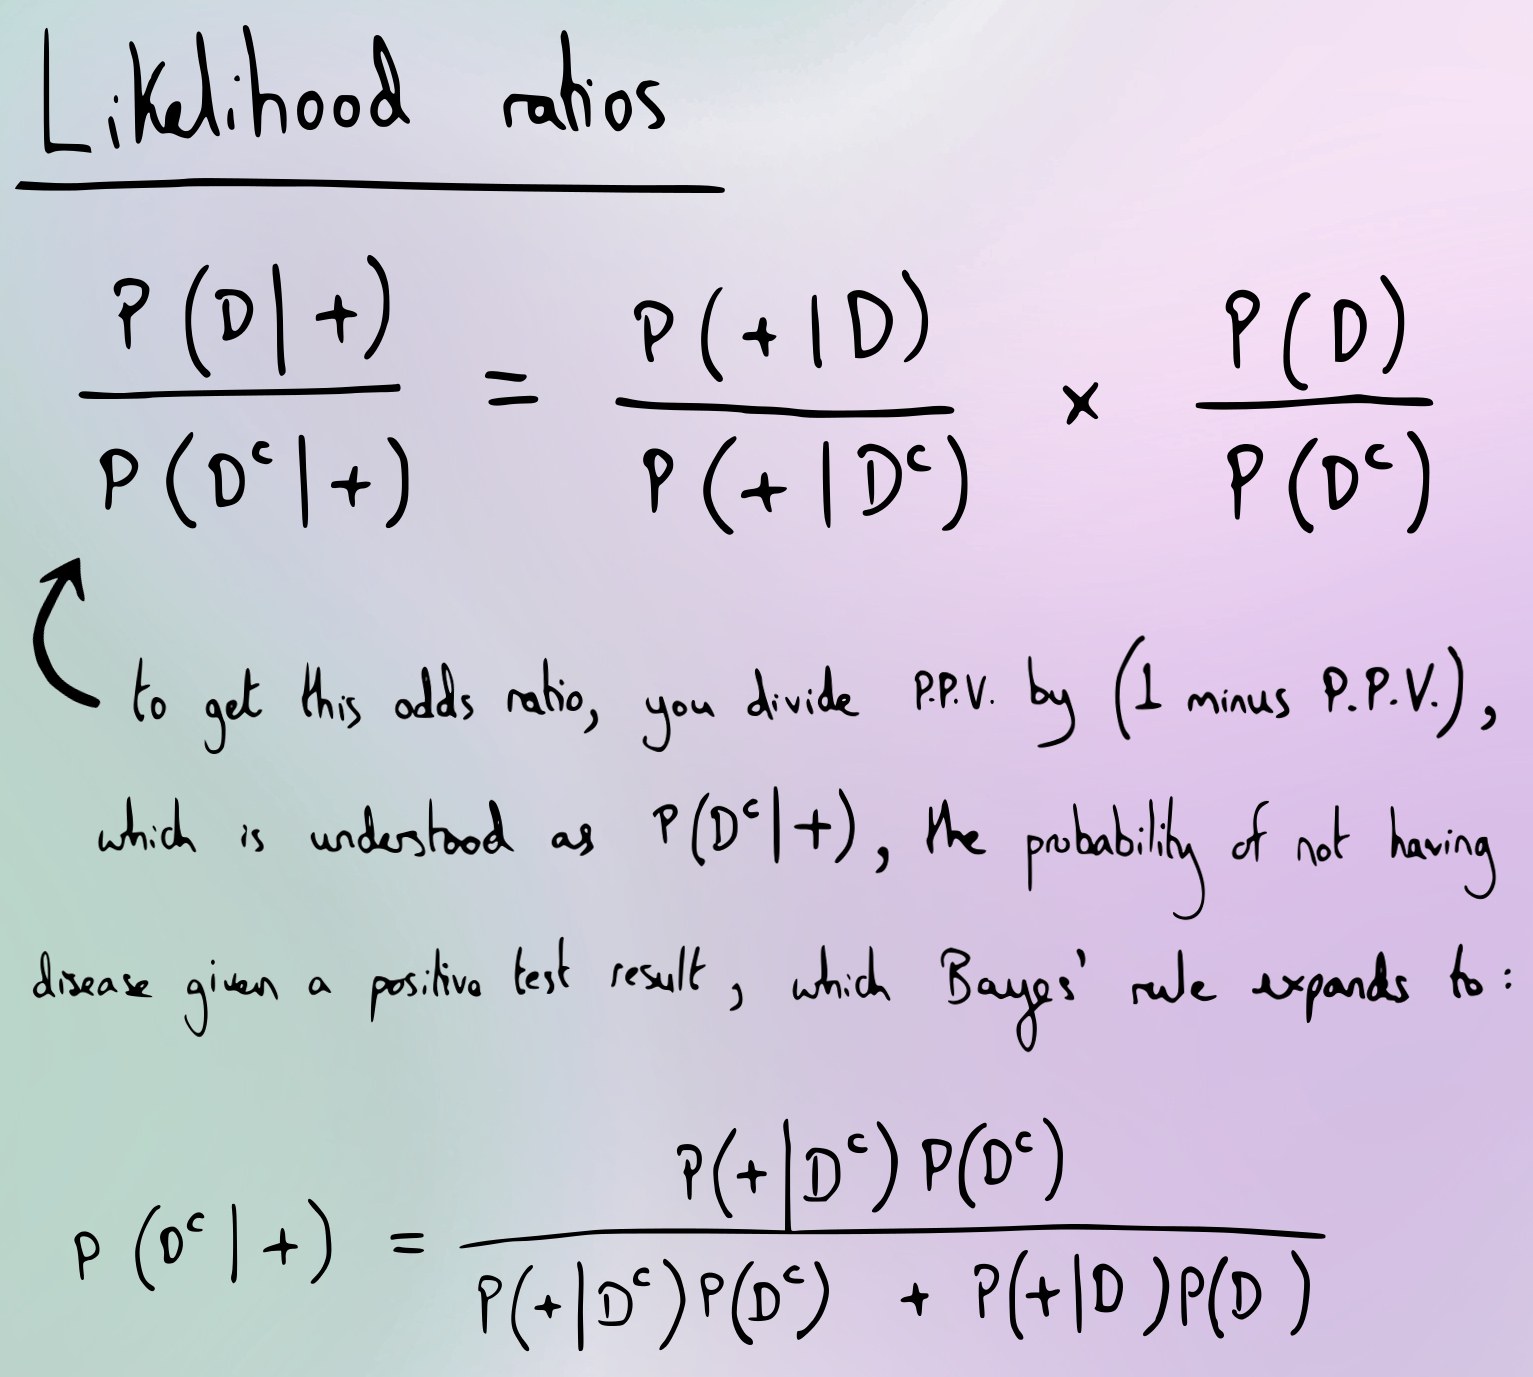 Likelihood ratios
P(D|+) / P(Dᶜ|+) = P(+|D) / P(+|Dᶜ) × P(D) / P(Dᶜ)
to get this odds ratio, you divide P.P.V. by (1 minus P.P.V.),
which is understood as P(Dᶜ|+), the probability of not having
disease given a positive test result, which Bayes' rule expands to:
P(Dᶜ|+) = P(+|Dᶜ) P(Dᶜ) / P(+|Dᶜ)P(Dᶜ) + P(+|D)P(D)